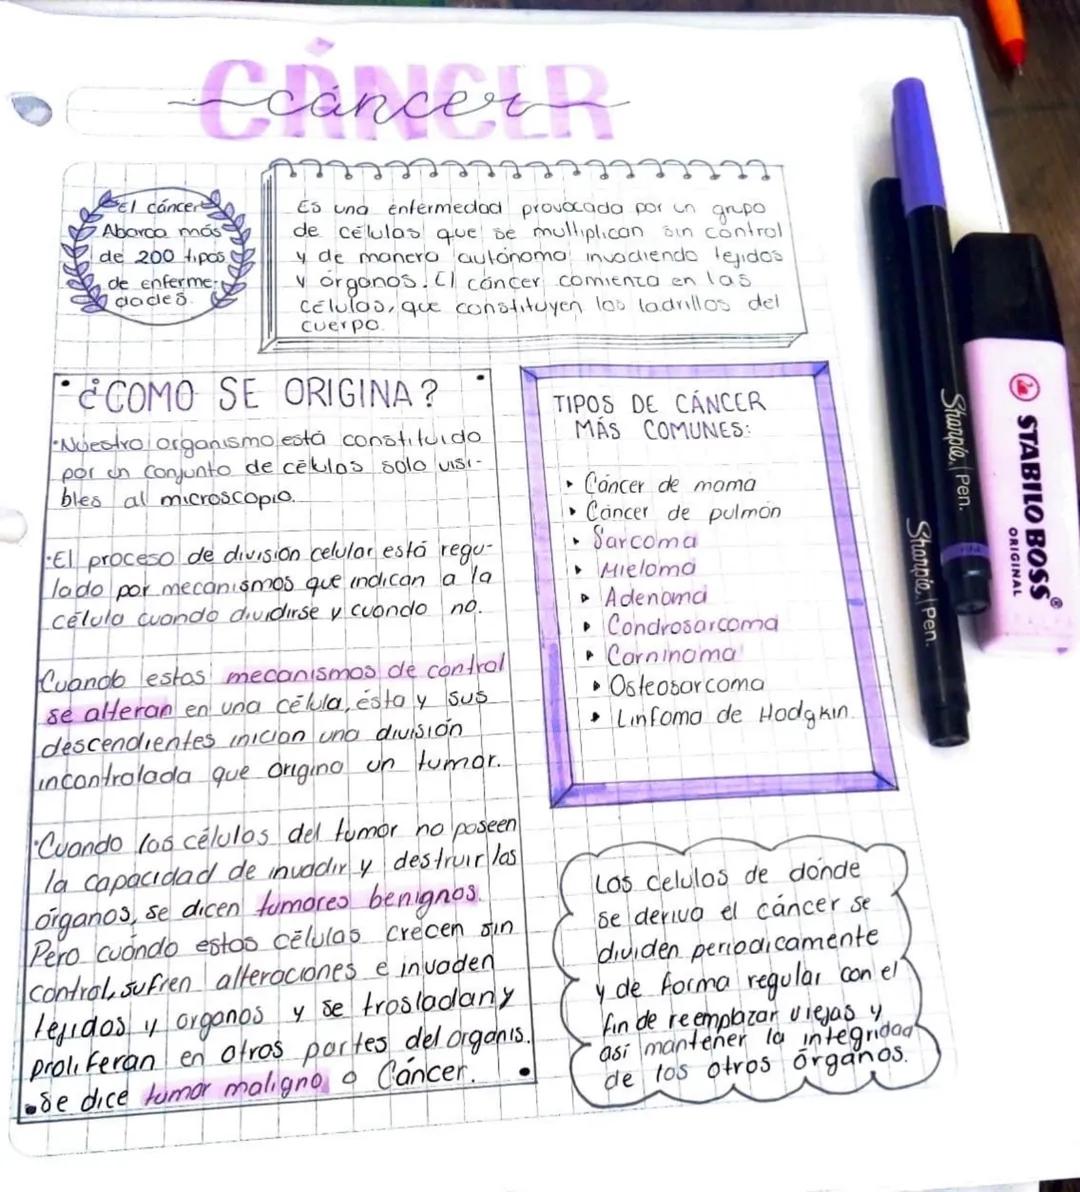 CÁNCER
cáncer
El cáncer
Abarca más
de 200 tipos
de enferme-
dades.
Es una enfermedad provocada por un grupo
de células que se multiplican sin control
y de manera autónoma invadiendo tejidos
y órganos. El cáncer comienza en las
células, que constituyen los ladrillos del
cuerpo.
¿COMO SE ORIGINA?
•Nuestro organismo está constituido
por un conjunto de células solo visi-
bles al microscopio.
•El proceso de división celular está regu-
lado por mecanismos que indican a la
célula cuando dividirse y cuando no.
Cuando estos mecanismos de control
se alteran en una célula, ésta y sus
descendientes inician una división
incontralada que origina un tumor.
•Cuando las células del tumor no poseen
la capacidad de invadir y destruir las
órganos, se dicen tumores benignos.
Pero cuándo estas células crecen sin
control, sufren alteraciones e invaden
tejidos y organos y se trasladan y
proliferan en otras partes del organis.
•Se dice tumor maligno o Cáncer.
TIPOS DE CÁNCER
MÁS COMUNES:
‣ Cáncer de mama
‣ Cáncer de pulmón
‣ Sarcoma
‣ Mieloma
‣ Adenoma
‣ Condrosarcoma
‣ Carninoma
‣ Osteosarcoma
‣ Linfoma de Hodgkin.
Las celulas de donde
se deriva el cáncer se
dividen periodicamente
y de forma regular con el
fin de reemplazar viejas y
así mantener la integridad
de los otros órganos.
Sharpie. Pen.
Sharpie. Pen.
STABILO BOSS®
ORIGINAL